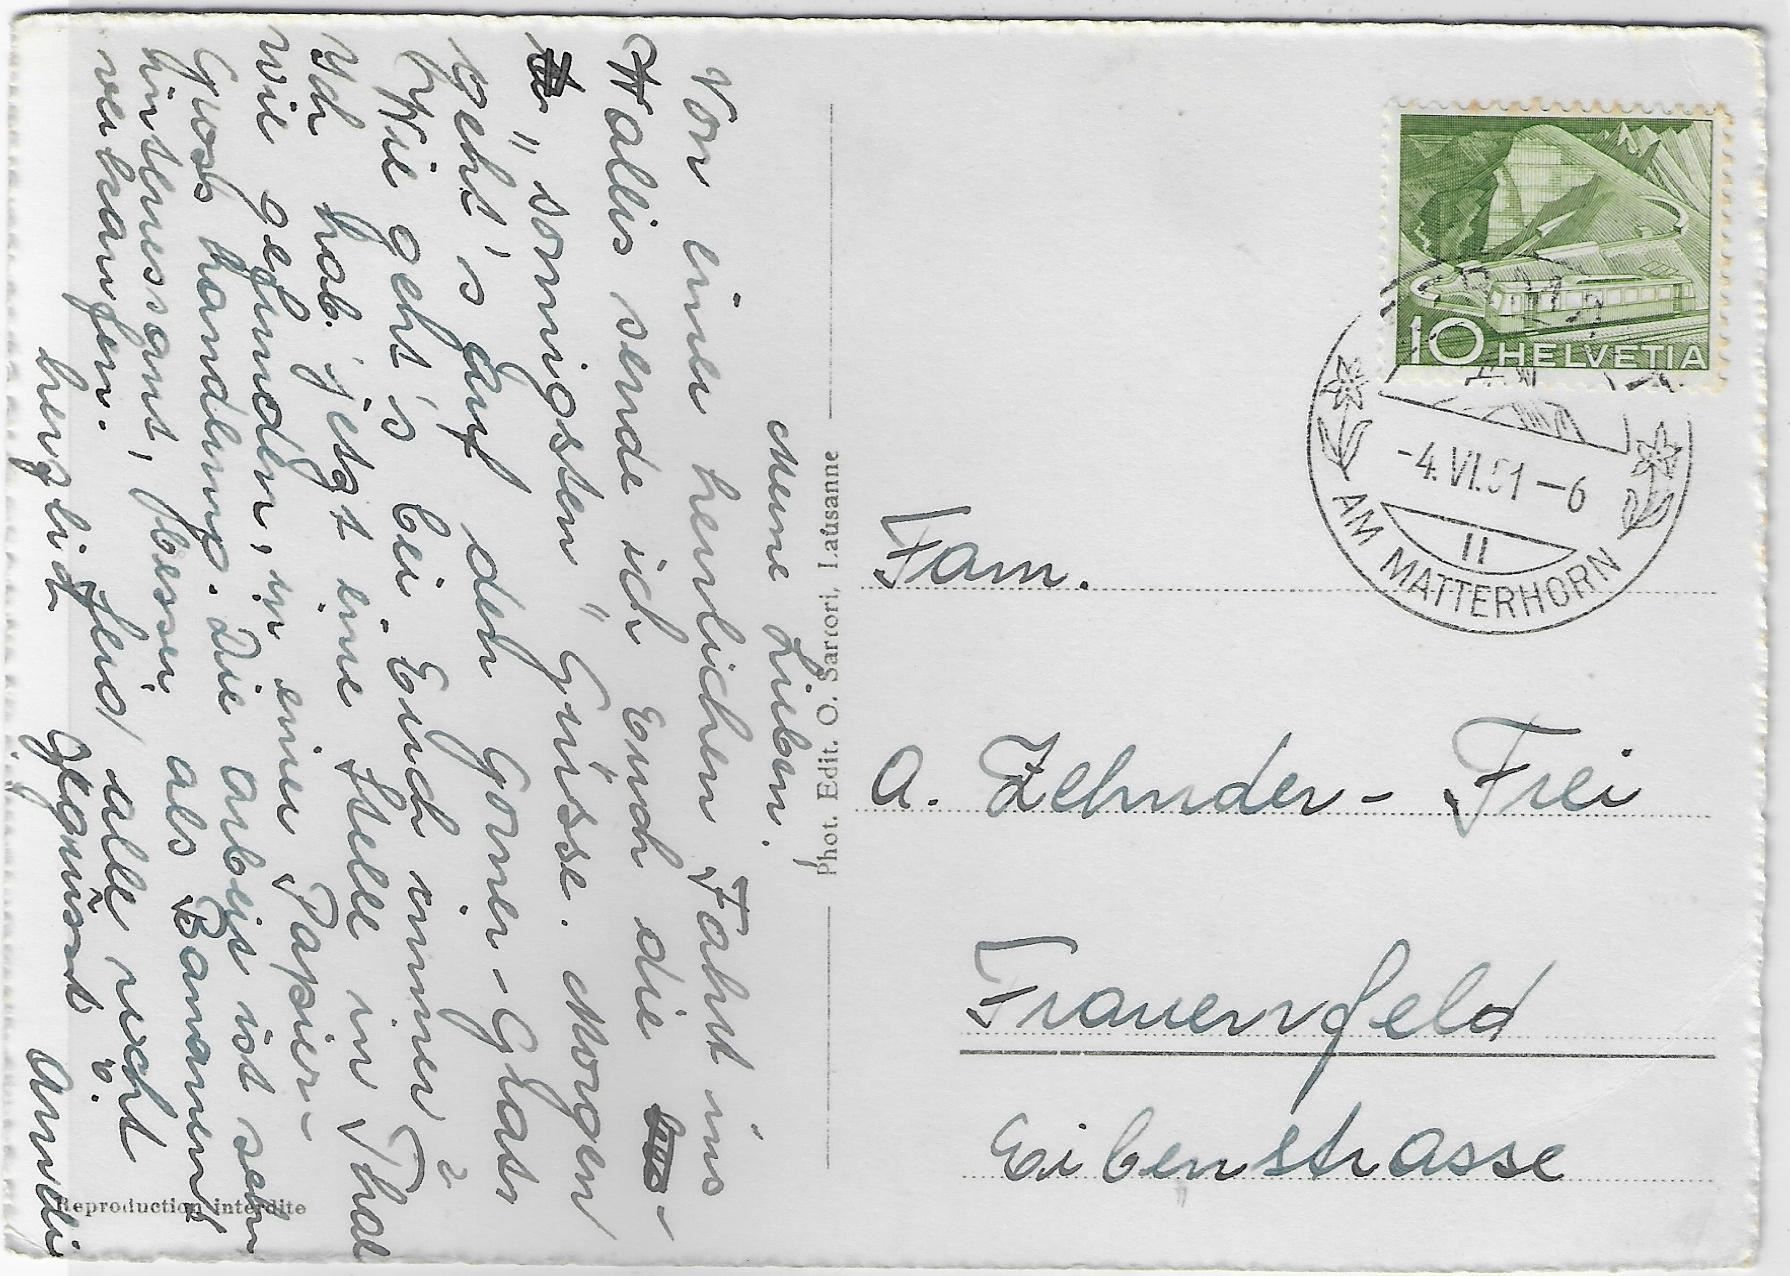 Meine Lieben.
Von einer herrlichen Fahrt ins
Wallis sende ich Euch die
"sonnigsten" Grüsse. Morgen
geht's auf den Gorner-Glats
Wie geht's bei Euch immer?
Ich hab jetzt eine Stelle in Thal
wie gefunden, in einer Papier-
Gross handlung. Die Arbeit ist sehr
interessant, besser als Bananen
verkaufen.
Seid alle recht
herzlich gegrüsst v.
Phot. Edit. O. Sartori, Lausanne
Reproduction interdite
10 HELVETIA
-4.VI.51-6
II
AM MATTERHORN
Fam.
A. Zehnder-Frei
Frauenfeld
Eibenstrasse